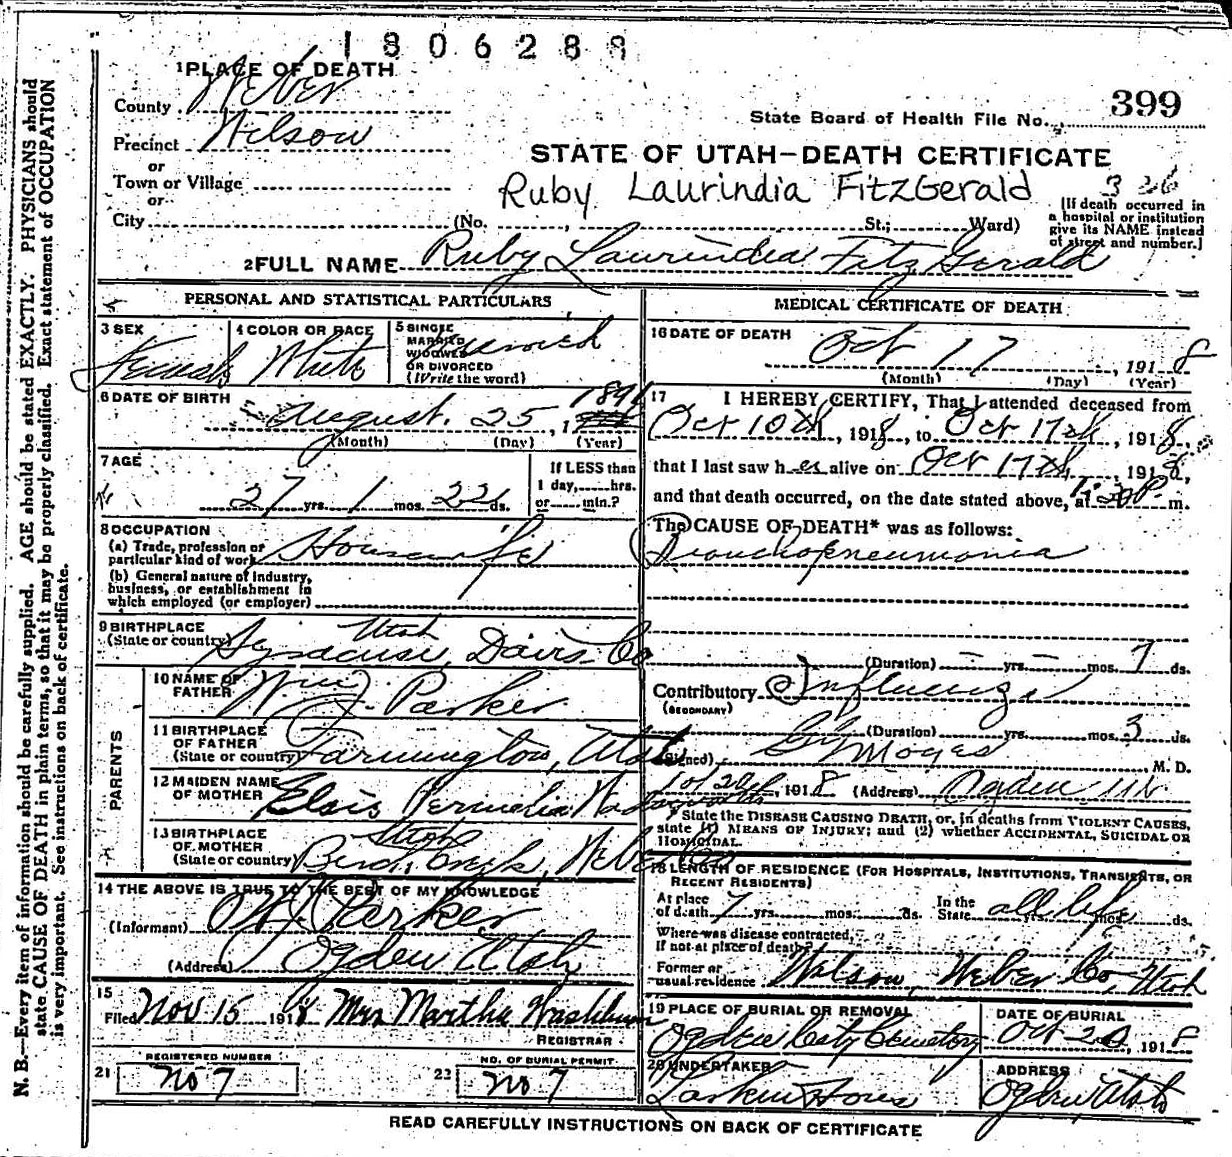 1806288
1 PLACE OF DEATH
County Weber
Precinct Wilson
or
Town or Village
or
City (No. , St.; Ward)
State Board of Health File No. 399
STATE OF UTAH-DEATH CERTIFICATE
Ruby Laurindia FitzGerald
326
[If death occurred in
a hospital or institution
give its NAME instead
of street and number.]
2 FULL NAME Ruby Laurindia Fitz Gerald
PERSONAL AND STATISTICAL PARTICULARS
3 SEX
Female
4 COLOR OR RACE
White
5 SINGLE
MARRIED
WIDOWED
OR DIVORCED
(Write the word)
6 DATE OF BIRTH
August 25, 1891
(Month) (Day) (Year)
7 AGE
27 yrs. 1 mos. 22 ds.
If LESS than
1 day, hrs.
or min.?
8 OCCUPATION
(a) Trade, profession or
particular kind of work Housewife
(b) General nature of industry,
business, or establishment in
which employed (or employer)
9 BIRTHPLACE
(State or country) Syracuse, Davis Co Utah
PARENTS
10 NAME OF
FATHER Wm J. Parker
11 BIRTHPLACE
OF FATHER
(State or country) Farmington, Utah
12 MAIDEN NAME
OF MOTHER Elsie Permelia
13 BIRTHPLACE
OF MOTHER
(State or country) Creek, Weber Co Utah
14 THE ABOVE IS TRUE TO THE BEST OF MY KNOWLEDGE
(Informant) W J Parker
(Address) Ogden Utah
15
Filed Nov 15 1918 Mrs Martha Washburn
REGISTRAR
21 REGISTERED NUMBER
No 7
23 NO. OF BURIAL PERMIT
No 7
MEDICAL CERTIFICATE OF DEATH
16 DATE OF DEATH
Oct 17, 1918
(Month) (Day) (Year)
17 I HEREBY CERTIFY, That I attended deceased from
Oct 10th, 1918, to Oct 17th, 1918,
that I last saw her alive on Oct 17th, 1918,
and that death occurred, on the date stated above, at m.
The CAUSE OF DEATH* was as follows:
Bronchopneumonia
(Duration) - yrs. - mos. 7 ds.
Contributory Influenza
(SECONDARY)
(Duration) yrs. mos. 3 ds.
(Signed) Moyes, M. D.
1918 (Address) Ogden Ut
* State the DISEASE CAUSING DEATH, or, in deaths from VIOLENT CAUSES,
state (1) MEANS OF INJURY; and (2) whether ACCIDENTAL, SUICIDAL OR
HOMICIDAL.
18 LENGTH OF RESIDENCE (FOR HOSPITALS, INSTITUTIONS, TRANSIENTS, OR
RECENT RESIDENTS)
At place
of death 7 yrs. mos. ds.
In the
State all life yrs. mos. ds.
Where was disease contracted,
if not at place of death?
Former or
usual residence Wilson, Weber Co, Utah
19 PLACE OF BURIAL OR REMOVAL
Ogden City Cemetery
DATE OF BURIAL
Oct 20, 1918
20 UNDERTAKER
Larkin & Sons
ADDRESS
Ogden, Utah
READ CAREFULLY INSTRUCTIONS ON BACK OF CERTIFICATE
N. B.—Every item of information should be carefully supplied. AGE should be stated EXACTLY. PHYSICIANS should
state CAUSE OF DEATH in plain terms, so that it may be properly classified. Exact statement of OCCUPATION
is very important. See instructions on back of certificate.